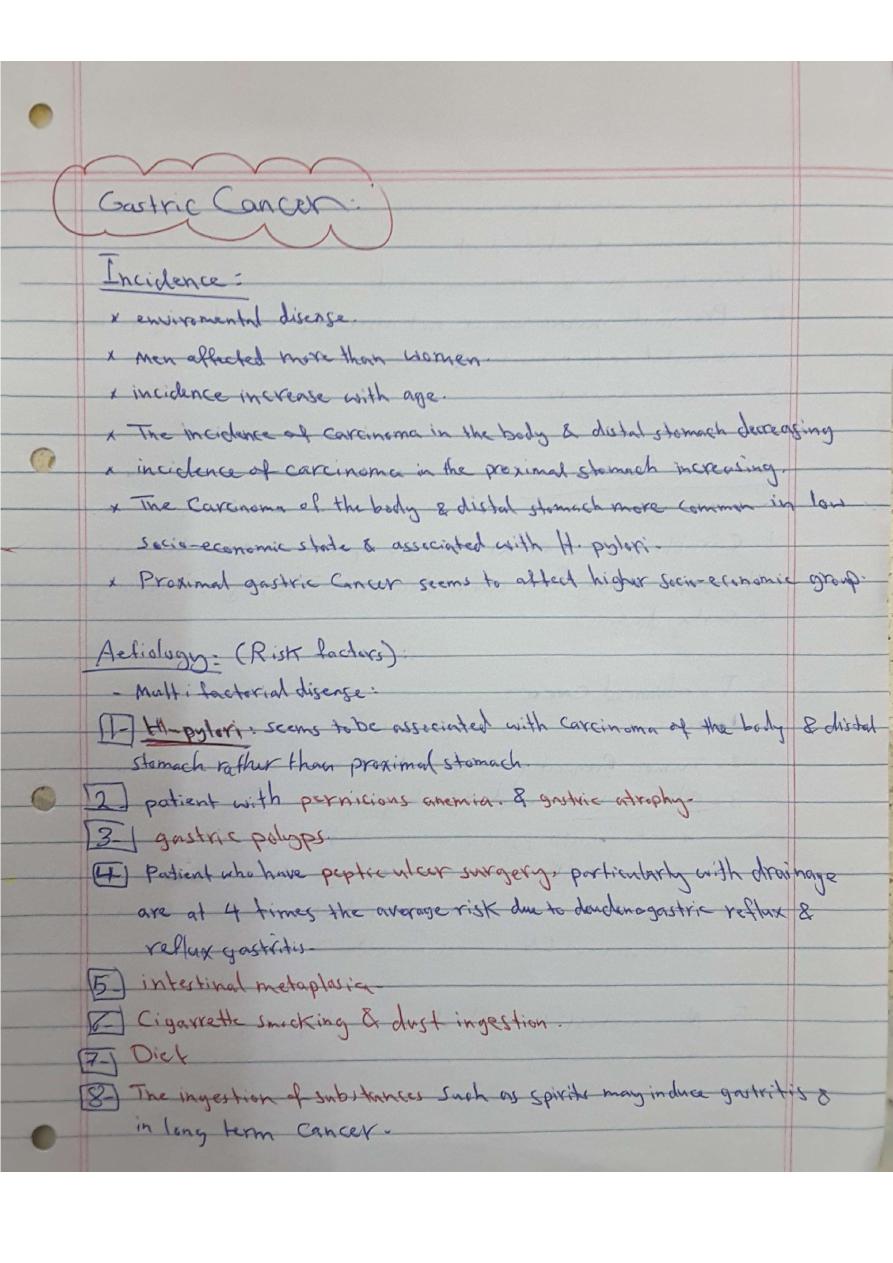 Gastric Cancer:
Incidence:
x enviromental disease.
x Men affected more than women.
x incidence increase with age.
x The incidence of carcinoma in the body & distal stomach decreasing
x incidence of carcinoma in the proximal stomach increasing.
x The Carcinoma of the body & distal stomach more common in low
socio-economic state & associated with H. pylori.
x Proximal gastric Cancer seems to affect higher socio-economic group.
Aetiology: (Risk factors):
- Multifactorial disease:
1- H-pylori: seems to be associated with carcinoma of the body & distal
stomach rather than proximal stomach.
2- patient with pernicious anemia. & gastric atrophy-
3- gastric polyps.
4- Patient who have peptic ulcer surgery, particularly with drainage
are at 4 times the average risk due to doudenogastric reflux &
reflux gastritis-
5- intestinal metaplasia-
6- Cigarrette smocking & dust ingestion.
7- Diet
8- The ingestion of substances such as spirits may induce gastritis &
in long term cancer.